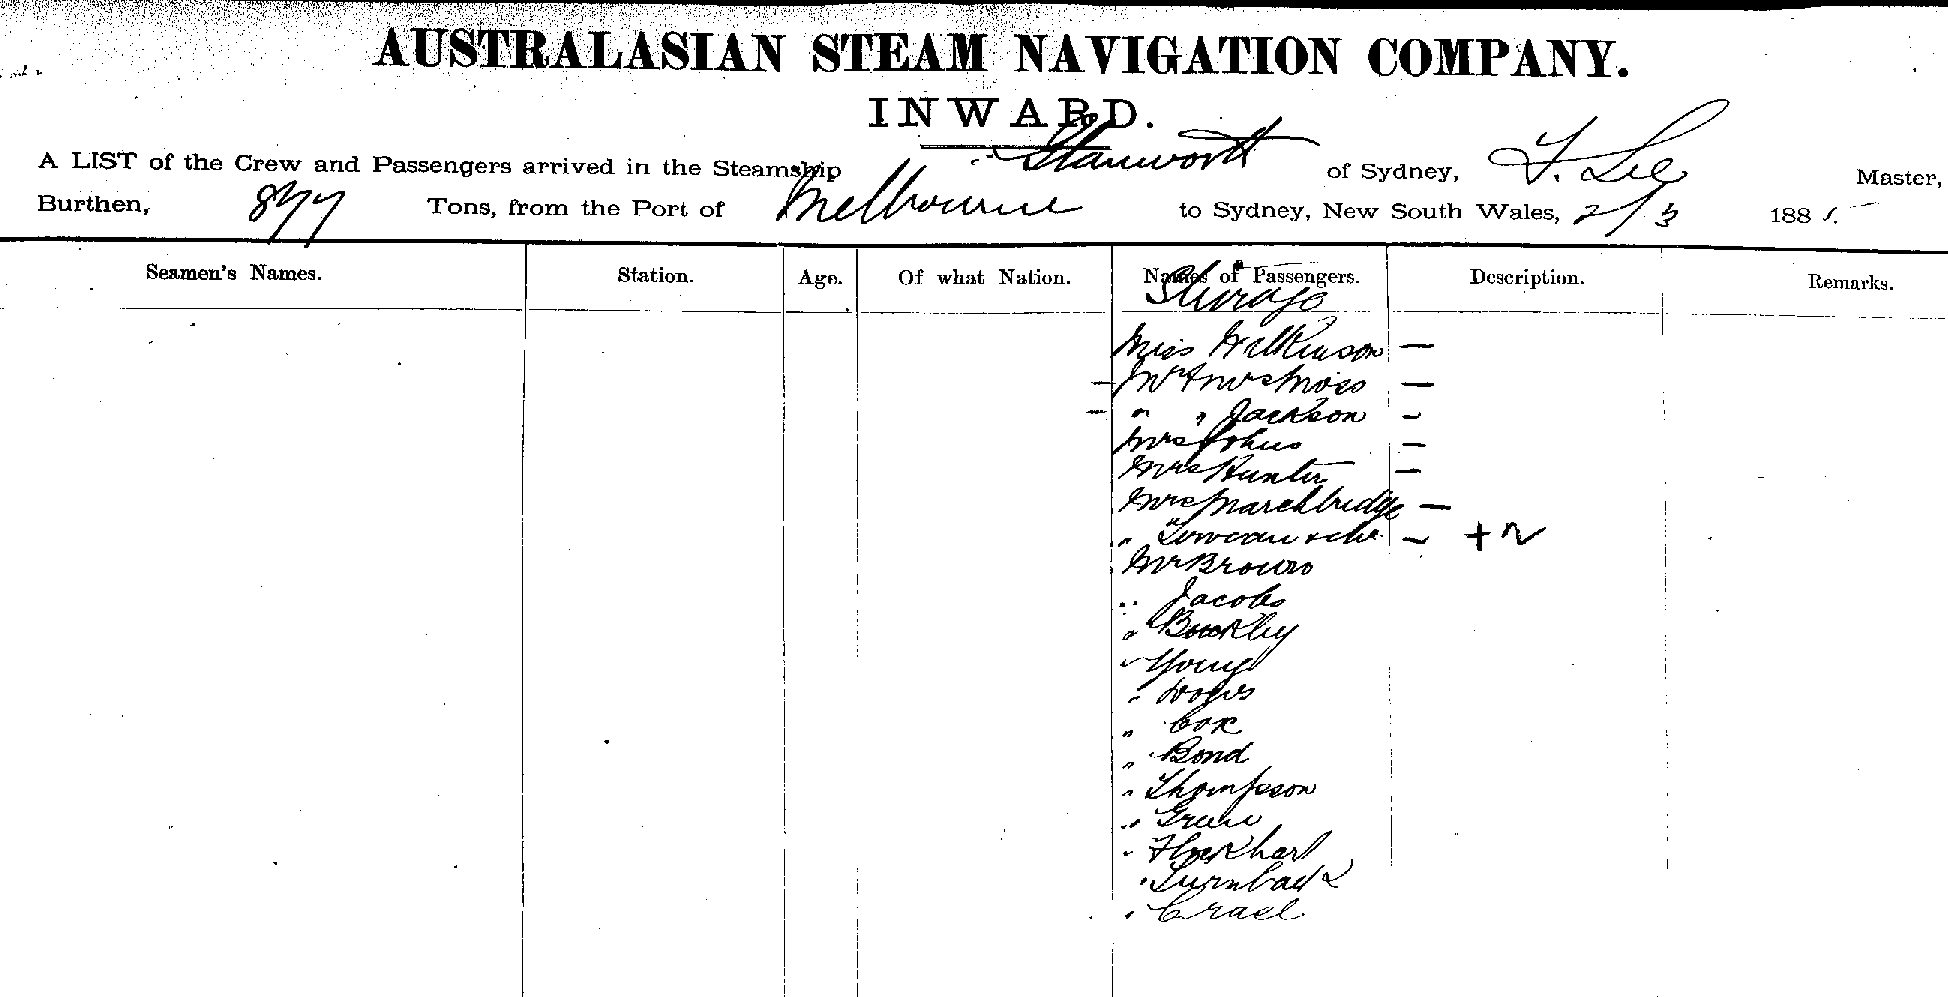 AUSTRALASIAN STEAM NAVIGATION COMPANY.
INWARD.
A LIST of the Crew and Passengers arrived in the Steamship Stanworth of Sydney, F. Lee Master,
Burthen, 877 Tons, from the Port of Melbourne to Sydney, New South Wales, 2/3 1885.
Seamen's Names. Station. Age. Of what Nation. Names of Passengers. Description. Remarks.
Steerage
Miss Wilkinson —
— Mr & Mrs Moss —
— " " Jackson —
Mrs Johns —
Mrs Hunter —
Mrs Marchbridge —
" & — + 2
Mr Brown
" Jacobs
" Buckley
" Young
"
" Cox
" Bond
" Thompson
" Green
" Flockhart
" Turnback
"